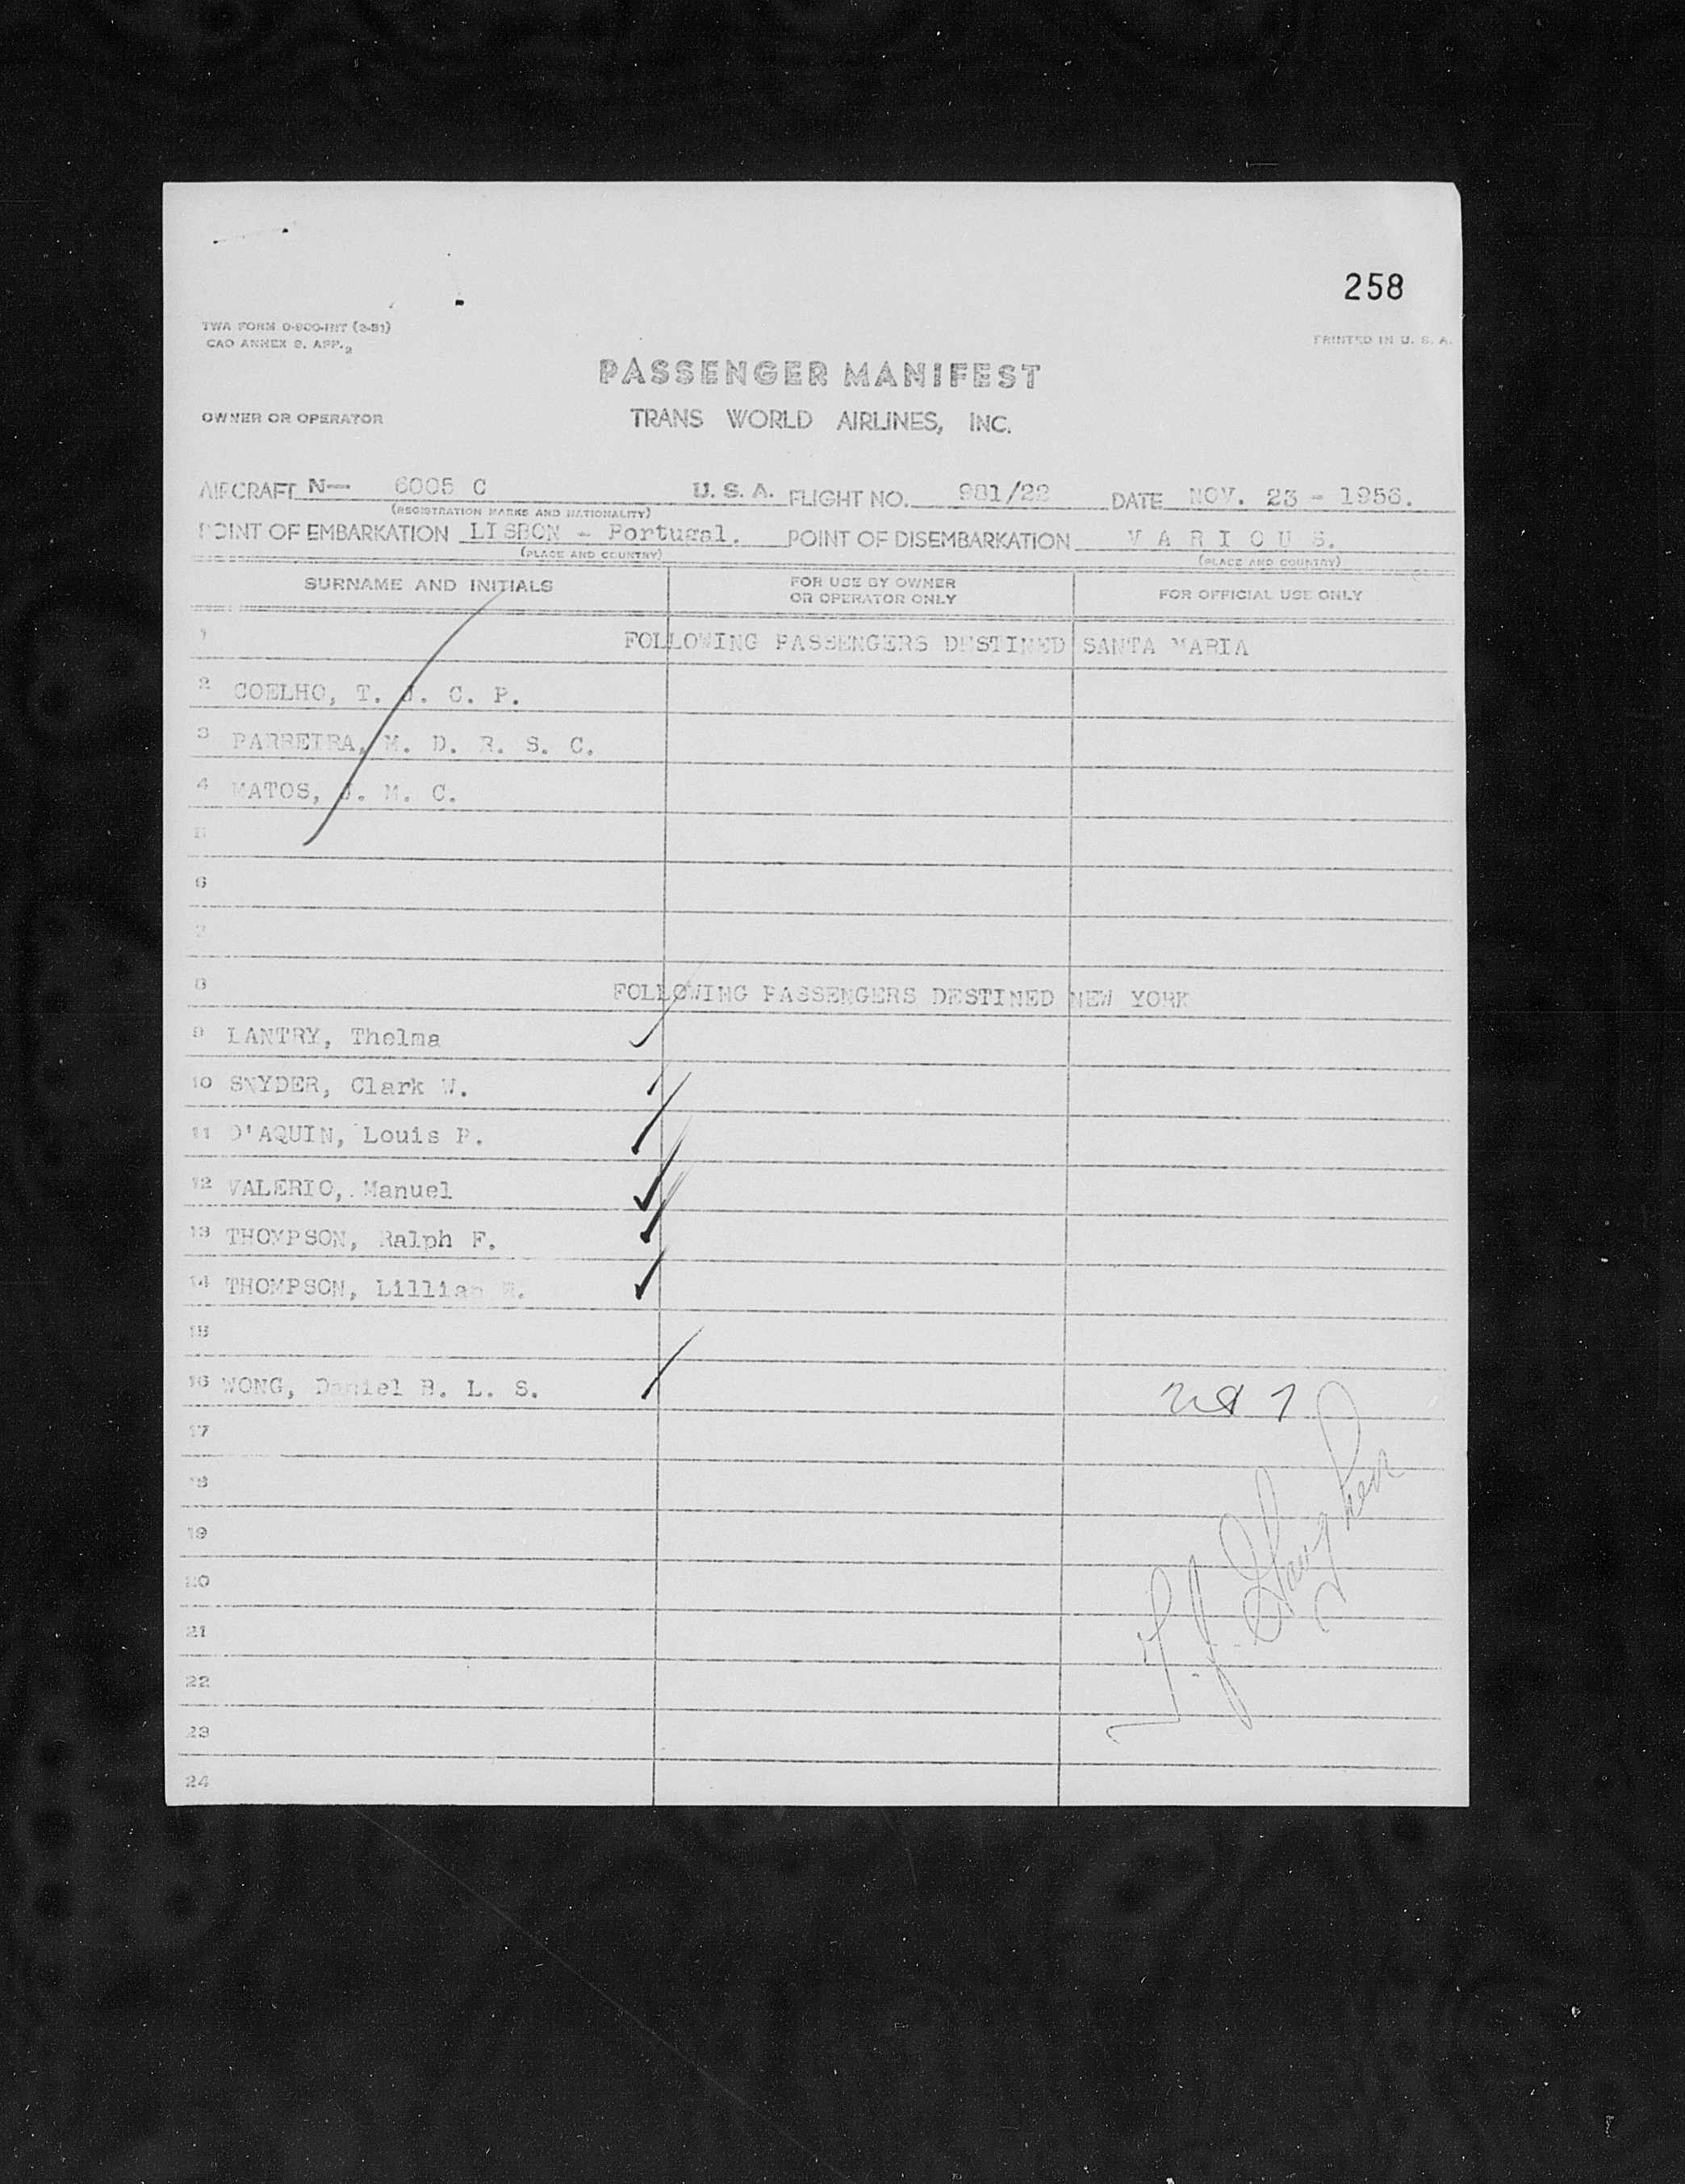 258
TWA FORM O-800-INT (3-51)
PRINTED IN U. S. A.
CAO ANNEX 9, APP. 2
PASSENGER MANIFEST
OWNER OR OPERATOR
TRANS WORLD AIRLINES, INC.
AIRCRAFT N— 6005 C U. S. A. FLIGHT NO. 981/22 DATE NOV. 23 - 1956.
(REGISTRATION MARKS AND NATIONALITY)
POINT OF EMBARKATION LISBON - Portugal. POINT OF DISEMBARKATION V A R I O U S.
(PLACE AND COUNTRY) (PLACE AND COUNTRY)
SURNAME AND INITIALS FOR USE BY OWNER OR OPERATOR ONLY FOR OFFICIAL USE ONLY
1 FOLLOWING PASSENGERS DESTINED SANTA MARIA
2 COELHO, T. J. C. P.
3 PARREIRA, M. D. R. S. C.
4 MATOS, J. M. C.
5
6
7
8 FOLLOWING PASSENGERS DESTINED NEW YORK
9 LANTRY, Thelma
10 SNYDER, Clark W.
11 D'AQUIN, Louis P.
12 VALERIO, Manuel
13 THOMPSON, Ralph F.
14 THOMPSON, Lillian
15
16 WONG, Daniel B. L. S.
17
18
19
20
21
22
23
24